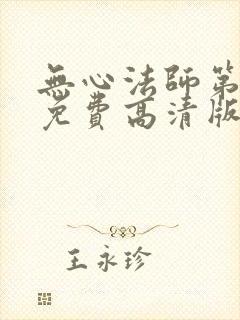 無心法師第
免費高清版
王永珍